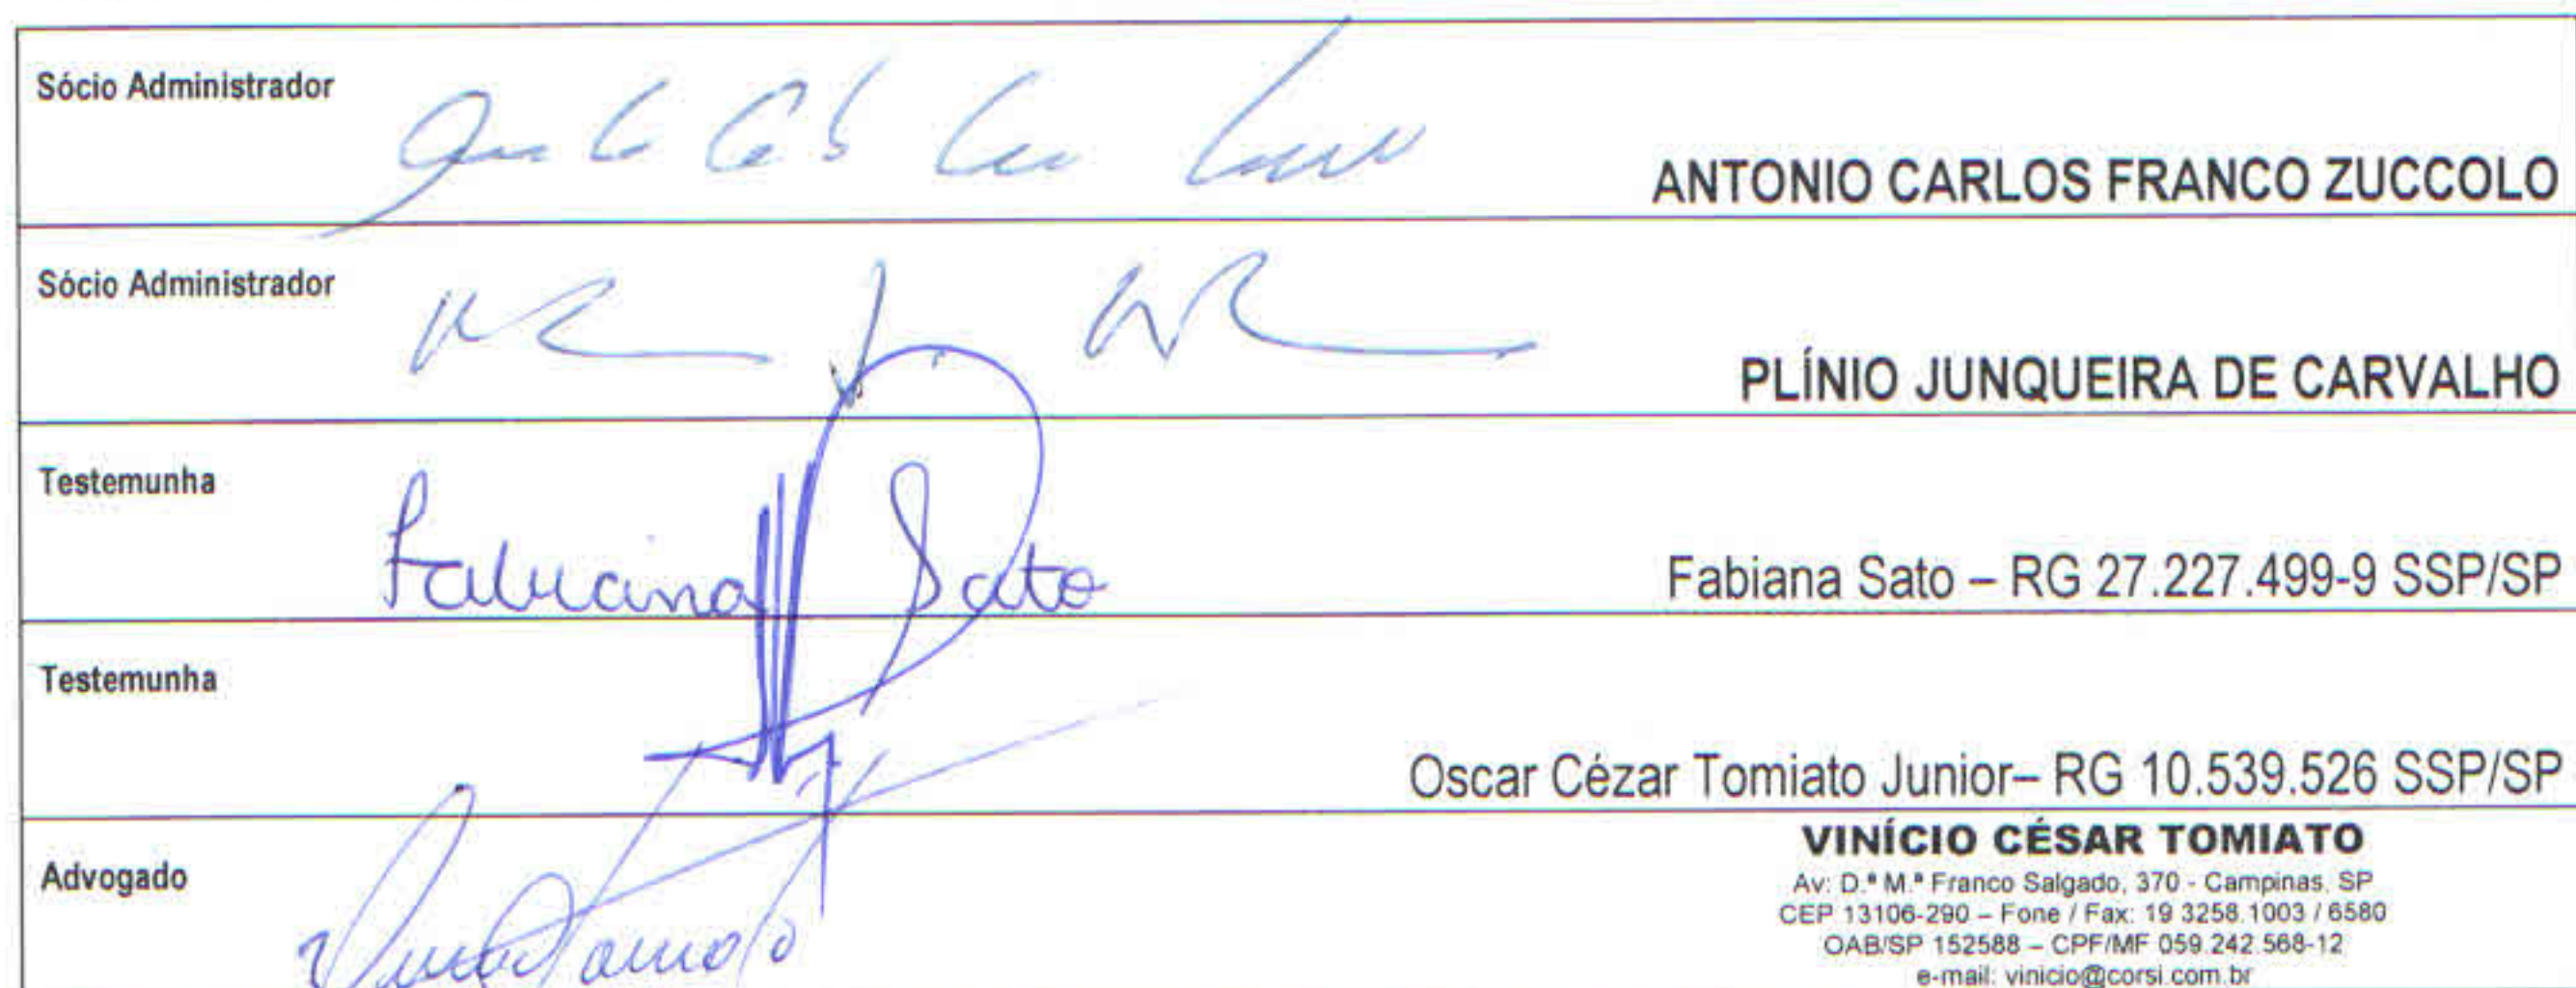 Sócio Administrador
ANTONIO CARLOS FRANCO ZUCCOLO
Sócio Administrador
PLÍNIO JUNQUEIRA DE CARVALHO
Testemunha
Fabiana Sato
Fabiana Sato – RG 27.227.499-9 SSP/SP
Testemunha
Oscar Cézar Tomiato Junior– RG 10.539.526 SSP/SP
Advogado
VINÍCIO CÉSAR TOMIATO
Av: D.ª M.ª Franco Salgado, 370 - Campinas, SP
CEP 13106-290 – Fone / Fax: 19 3258.1003 / 6580
OAB/SP 152588 – CPF/MF 059.242.568-12
e-mail: vinicio@corsi.com.br